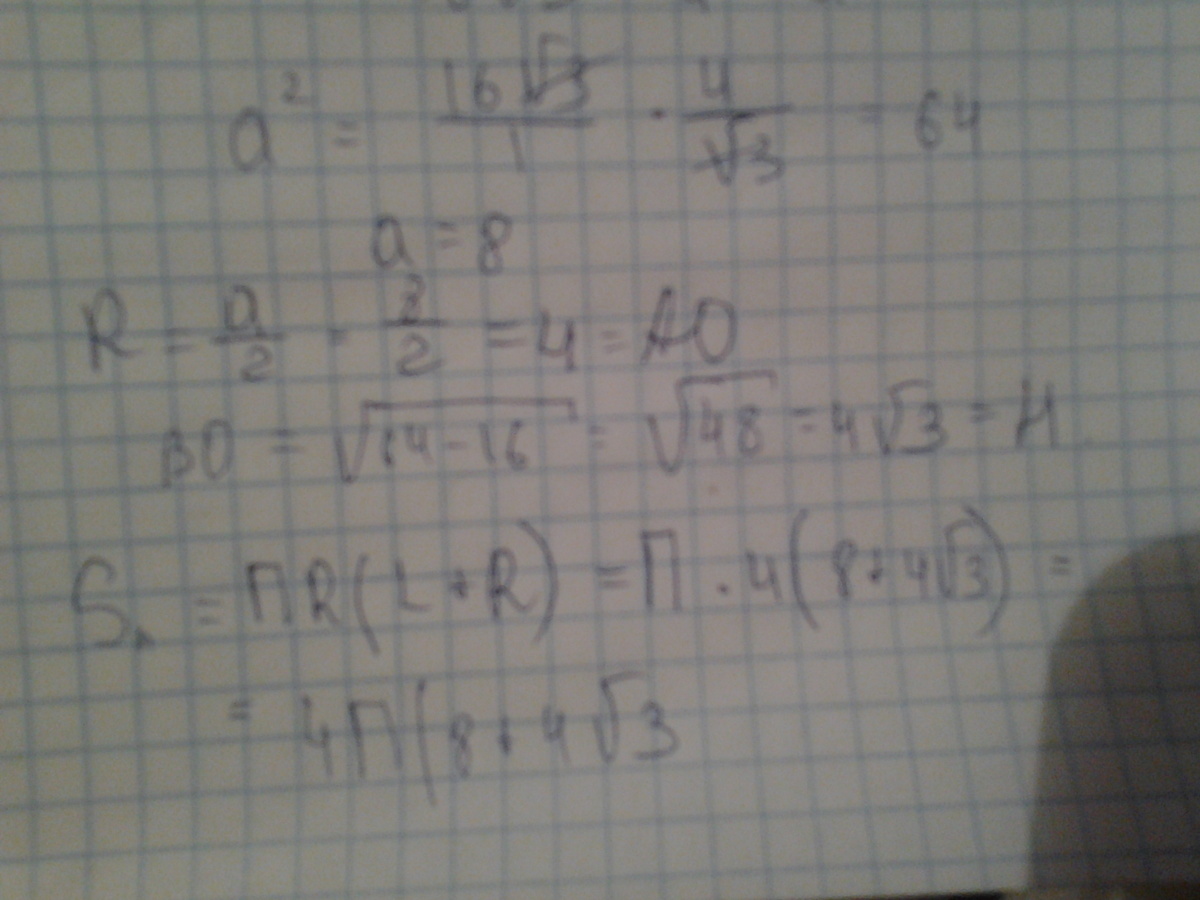 a² = 16√3/1 · 4/√3 = 64
a = 8
R = a/2 = 8/2 = 4 = AO
BO = √64-16 = √48 = 4√3 = H
S = ПR(L+R) = П · 4(8+4√3) =
= 4П(8+4√3